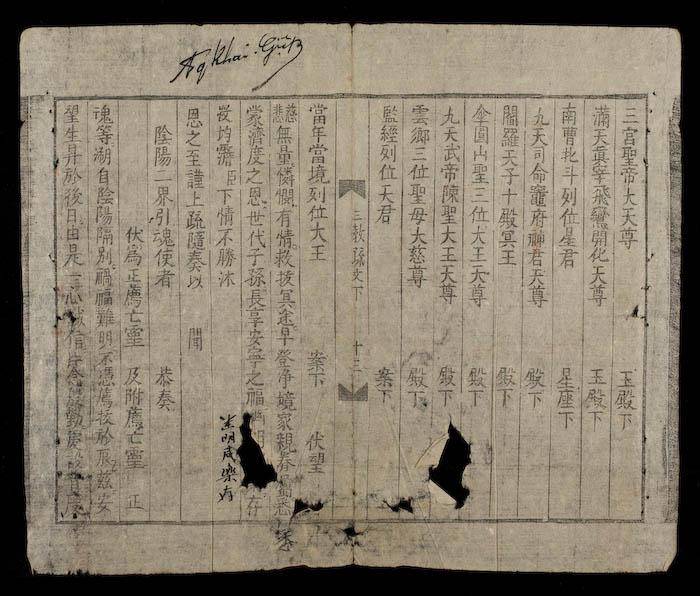 三宮聖帝大天尊 玉殿下
滿天眞宰飛鸞開化天尊 玉殿下
南曹北斗列位星君 星座下
九天司命竈府神君天尊 殿下
閻羅天子十殿冥王 殿下
傘圓山聖三位大王大天尊 殿下
九天武帝陳聖大王大天尊 殿下
雲鄉三位聖母大慈尊 殿下
監經列位天君 案下
三教疏文下 十三
當年當境列位大王 案下 伏望
慈悲無量憐憫有情救拔冥途早登净境家親眷屬悉
蒙濟度之恩世代子孫長享安寧之福 存
歿均霑臣下情不勝沐 明咸樂存
恩之至謹上疏隨奏以 聞
陰陽二界引魂使者 恭奏
伏爲正薦亡靈 及附薦亡靈 正
魂等溯自陰陽隔別禍福難明不憑薦拔於辰茲安
望生昇於後日由是一心誠信